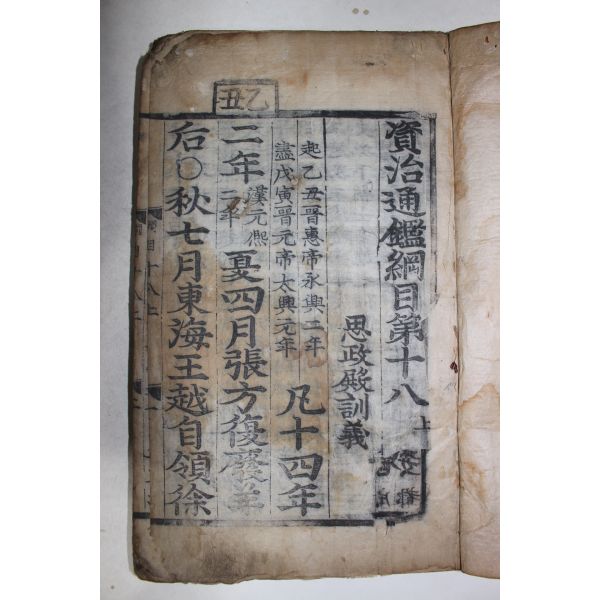 資治通鑑綱目第十八上
思政殿訓義
起乙丑晋惠帝永興二年
盡戊寅晋元帝太興元年
凡十四年
乙丑
二年
漢元熙
二年
夏四月張方復廢羊
后○秋七月東海王越自領徐